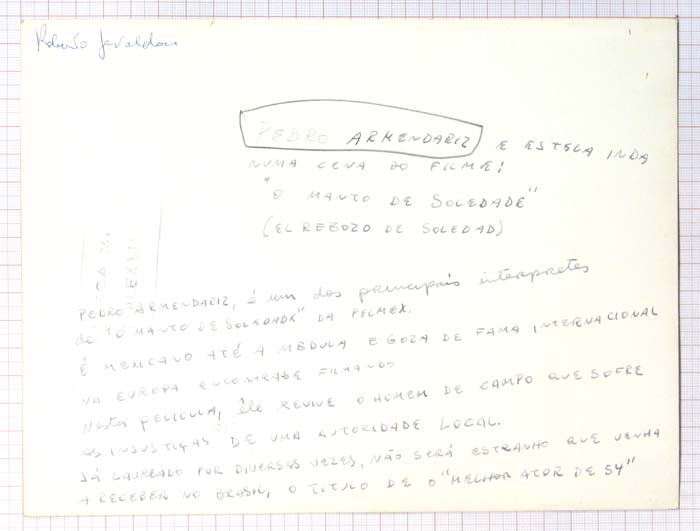 Roberto Gavaldon
PEDRO ARMENDARIZ E ESTELA INDA
NUMA CENA DO FILME:
"O MANTO DE SOLEDADE"
(EL REBOZO DE SOLEDAD)
PEDRO ARMENDARIZ, é um dos principais interpretes
de "O MANTO DE SOLEDADE" DA PELMEX.
É MEXICANO ATÉ A MEDULA E GOZA DE FAMA INTERNACIONAL
NA EUROPA ENCONTRASE FILMANDO
Nesta PELICULA, êle REVIVE O HOMEM DE CAMPO QUE SOFRE
AS INJUSTIÇAS DE UMA AUTORIDADE LOCAL.
JÁ LAUREADO POR DIVERSAS VEZES, NÃO SERÁ ESTRANHO QUE VENHA
A RECEBER NO BRASIL, O TITULO DE O "MELHOR ATOR DE 54"